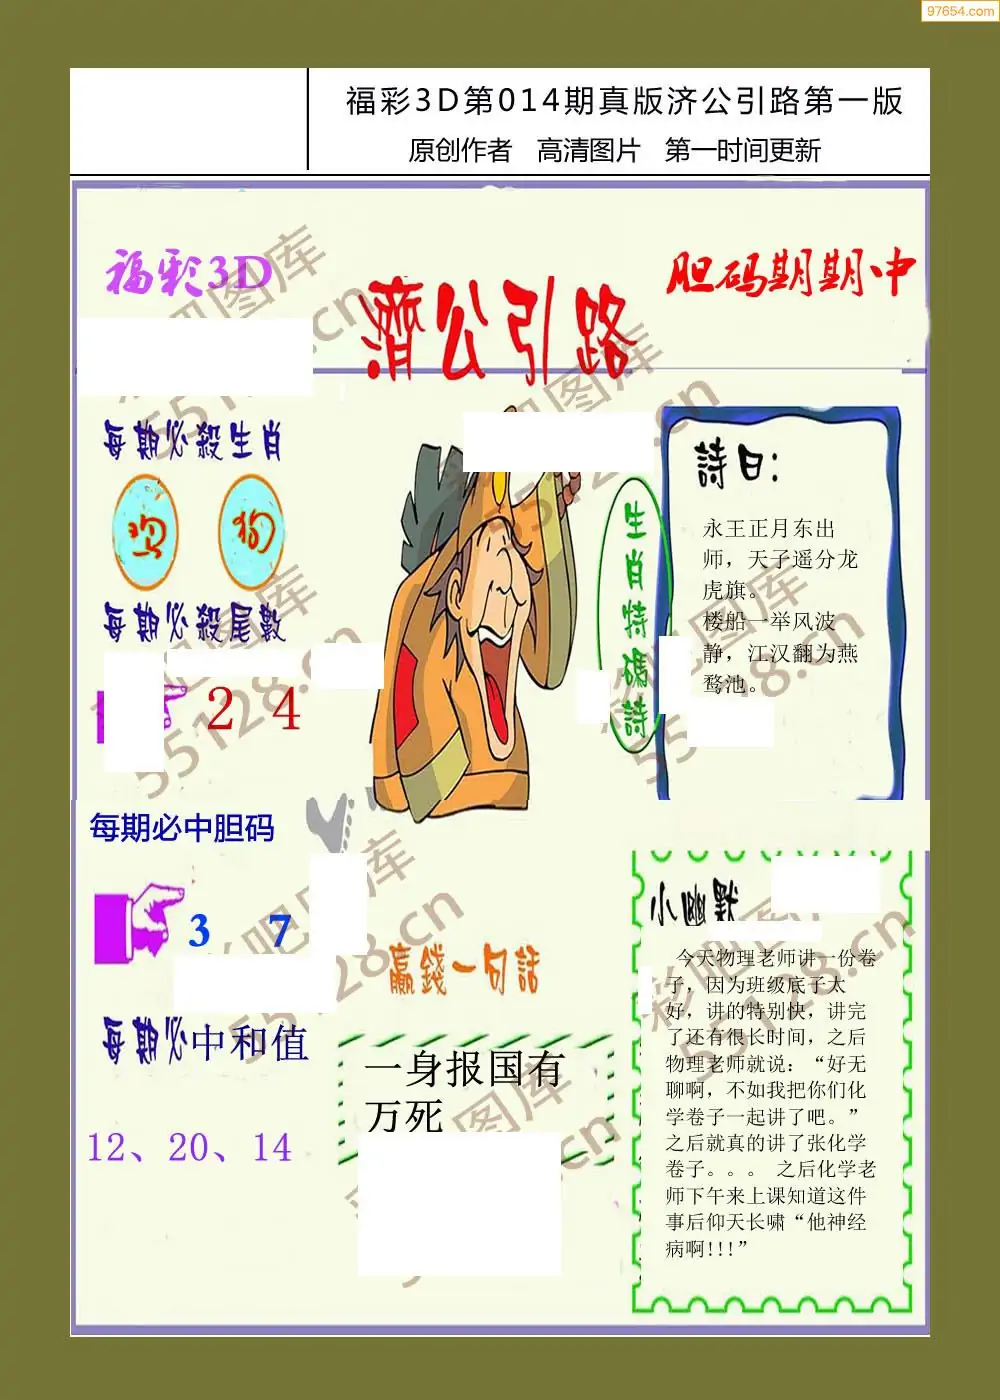 97654.com
福彩3D第014期真版济公引路第一版
原创作者 高清图片 第一时间更新
福彩3D
濟公引路
胆码期期中
每期必殺生肖
鸡 狗
每期必殺尾數
2 4
每期必中胆码
3 7
每期必中和值
12、20、14
生肖特碼詩
詩曰：
永王正月东出
师，天子遥分龙
虎旗。
楼船一举风波
静，江汉翻为燕
鹜池。
赢錢一句話
一身报国有
万死
小幽默
今天物理老师讲一份卷
子，因为班级底子太
好，讲的特别快，讲完
了还有很长时间，之后
物理老师就说：“好无
聊啊，不如我把你们化
学卷子一起讲了吧。”
之后就真的讲了张化学
卷子。。。 之后化学老
师下午来上课知道这件
事后仰天长啸“他神经
病啊!!!”
彩吧图库
55128.cn